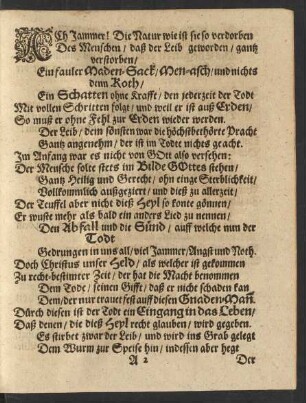 ACh Jammer! Die Natur wie ist sie so verdorben
Des Menschen / daß der Leib geworden / gantz
verstorben /
Ein fauler Maden-Sack / Men-asch / und nichts
denn Koth /
Ein Schatten ohne Krafft / den jederzeit der Todt
Mit vollen Schritten folgt / und weil er ist auß Erden /
So muß er ohne Fehl zur Erden wieder werden.
Der Leib / dem sonsten war die höchstbethörte Pracht
Gantz angenehm / der ist im Todte nichts geacht.
Im Anfang war es nicht von GOtt also versehen:
Der Mensche solte stets im Bilde GOttes stehen /
Gantz Heilig und Gerecht / ohn einge Sterbligkeit /
Vollkömmlich außgeziert / und dieß zu allerzeit /
Der Teuffel aber nicht dieß Heyl so konte gönnen /
Er wuste mehr als bald ein anders Lied zu nennen /
Den Abfall und die Sünd / auff welche nun der
Todt
Gedrungen in uns all / viel Jammer / Angst und Noth.
Doch Christus unser Held / als welcher ist gekommen
Zu recht-bestimter Zeit / der hat die Macht benommen
Dem Tode / seinen Gifft / daß er nicht schaden kan
Dem / der nur trauet fest auff diesen Gnaden-Mañ.
Dürch diesen ist der Tod ein Eingang in das Leben /
Daß denen / die dieß Heyl recht glauben / wird gegeben.
Es stirbet zwar der Leib / und wird ins Grab gelegt
Dem Wurm zur Speise hin / indessen aber hegt
A 2 Der